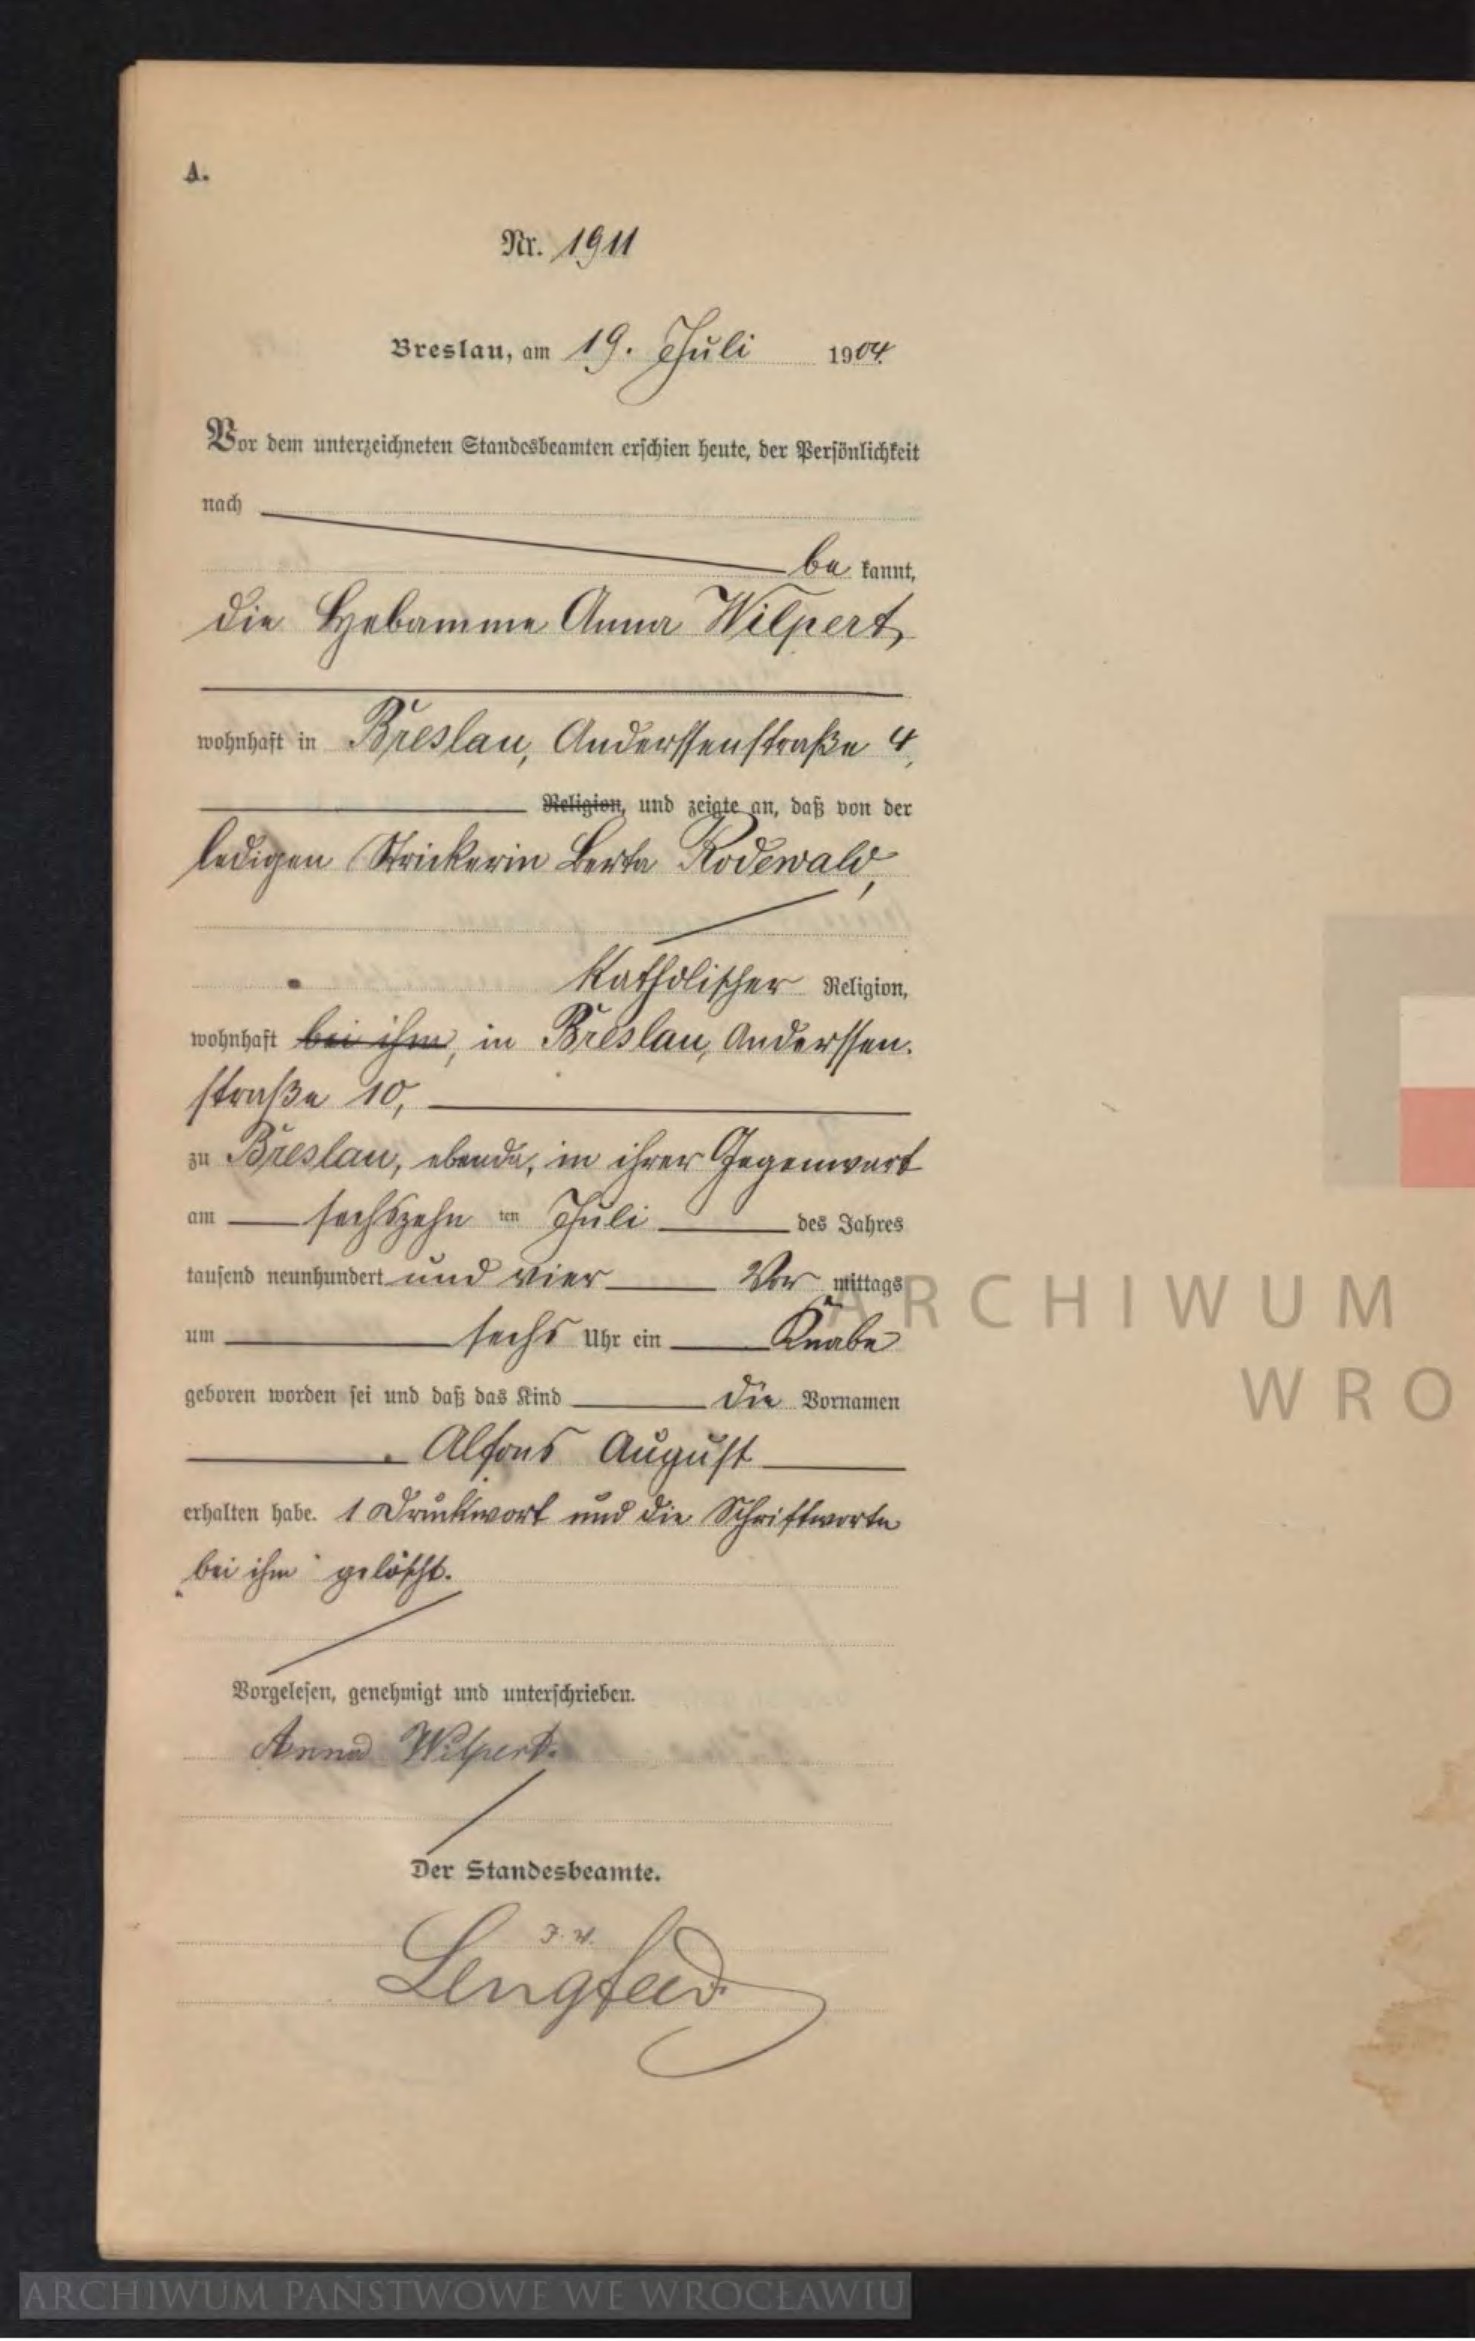 A.
Nr. 1911
Breslau, am 19. Juli 1904.
Vor dem unterzeichneten Standesbeamten erschien heute, der Persönlichkeit
nach
be kannt,
die Hebamme Anna Wilpert,
wohnhaft in Breslau, Anderssenstraße 4,
Religion, und zeigte an, daß von der
ledigen Strickerin Berta Rodewald,
katholischer Religion,
wohnhaft bei ihm, in Breslau, Anderssen-
straße 10,
zu Breslau, ebenda, in ihrer Gegenwart
am sechszehn ten Juli des Jahres
tausend neunhundert und vier Vor mittags
um sechs Uhr ein Knabe
geboren worden sei und daß das Kind die Vornamen
Alfons August
erhalten habe. 1 Druckwort und die Schriftworte
„bei ihm“ gelöscht.
Vorgelesen, genehmigt und unterschrieben.
Anna Wilpert.
Der Standesbeamte.
J. V.
ARCHIWUM
WRO
ARCHIWUM PAŃSTWOWE WE WROCŁAWIU